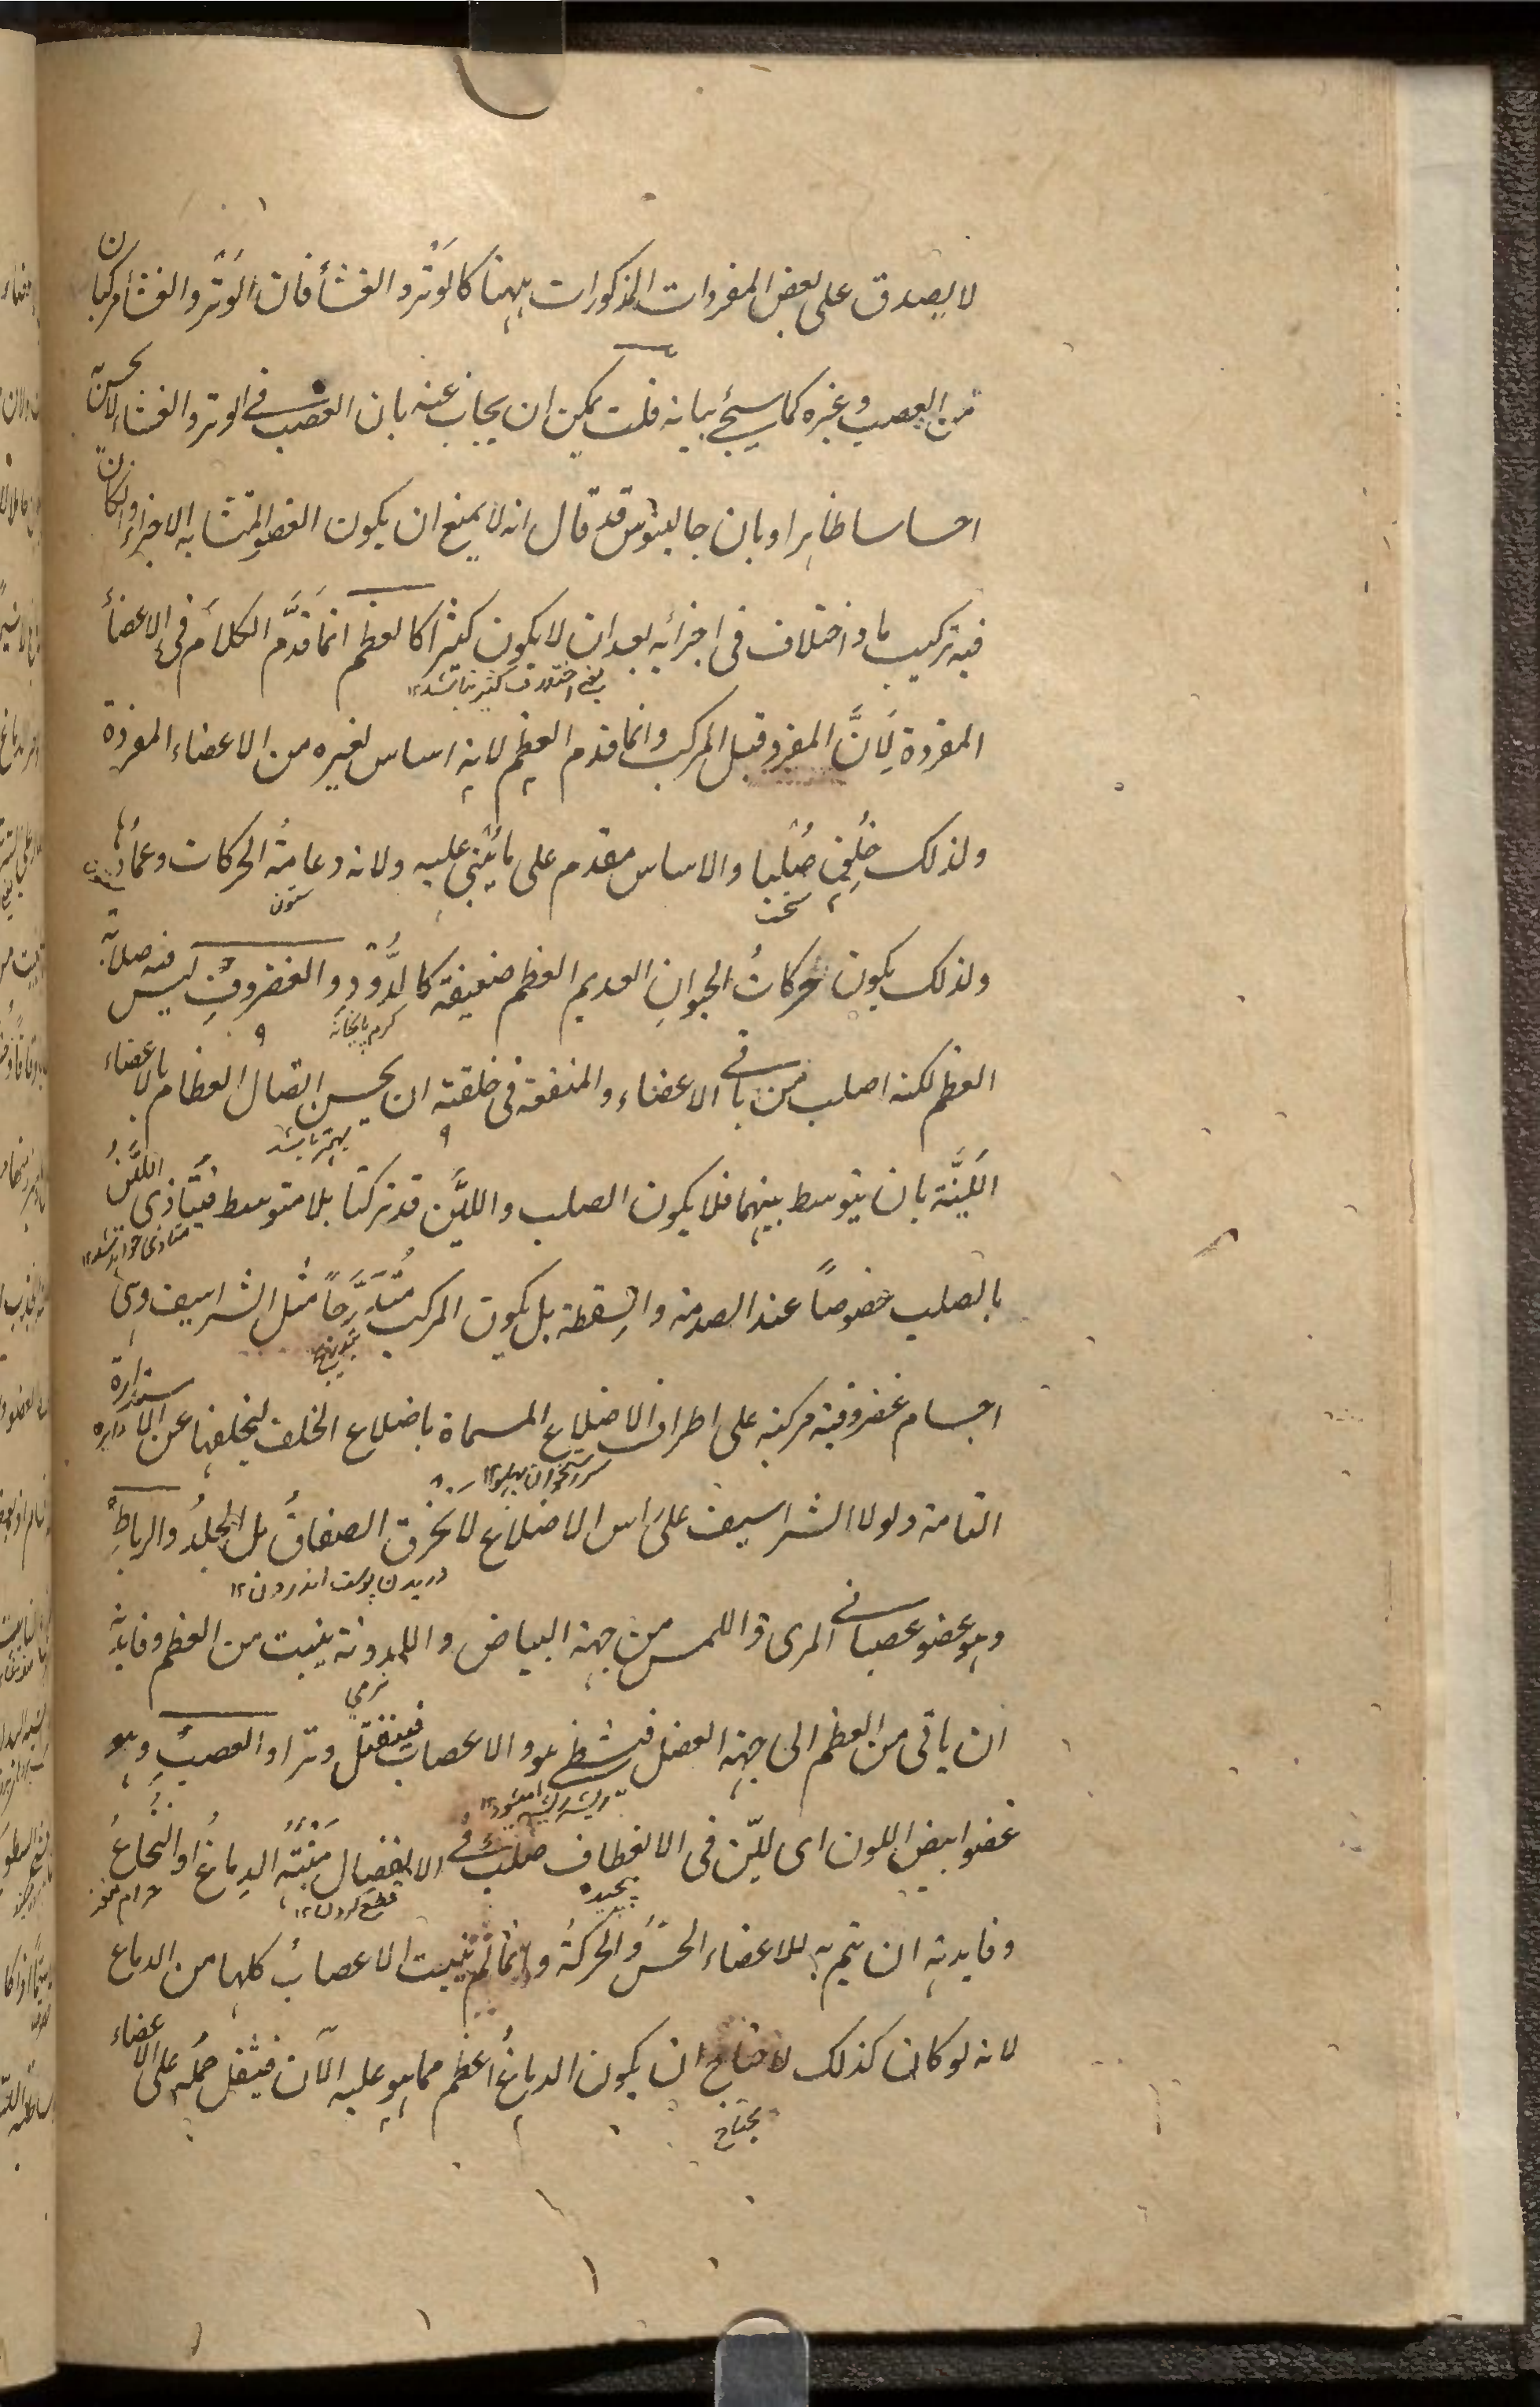 لا يصدق على بعض المفردات المذكورات ههنا كالوَتَر والغشأ فان الوَتَر والغشأ مركبان
من العصب وغيره كما سيجئ بيانه قلت يمكن ان يجاب عنه بان العصب فى الوتر والغشاء لا يحسن به
احساسا ظاهرا وبان جالينوس قد قال انه لا يمنع ان يكون العضو المتشابه الاجزاء وان كان
فيه تركيب ما واختلاف فى اجزائه بعد ان لا يكون كثيرًا كالعظم انما قدَّم الكلامَ فى الاعضأ
يعنى اختلاف كثير نباشد ١٢
المفردة لِاَنَّ المفرد قبل المركب وانما قدم العظم لانه اساس لغيره من الاعضاء المفردة
ولذلك خُلِق صُلبا والاساس مقدم على ما يُبنى عليه ولانه دعامةُ الحركات وعمادُها
سخت ستون ستون
ولذلك يكون حركاتُ الحيوانِ العديم العظم ضعيفة كالدُّوْدِ والغضروفُ ليس فيه صلابة
كرم پايخانه
العظم لكنه اصلب من باقى الاعضاء والمنفعة فى خلقته ان يحسن اتصال العظام بالاعضاء
بهتر باشد
اللَيِّنة بان يتوسط بينهما فلا يكون الصلب والليّن قد تركبا بلا متوسط فيتأذى الليّنُ
متاذى خواهد شد ١٢
بالصلب خصوصًا عند الصدمة والسقطة بل يكون المركب مُتَدَرِّجًا مثل الشراسيف وهى
بتدريج
اجسام غضروفية مركبة على اطراف الاضلاع المسماة باضلاع الخلف لتخلفها عن الاستدارة
سر استخوان پهلو ١٢ دايره
التامة ولولا الشراسيف على راس الاضلاع لانخرق الصفاقُ بل الجلدُ والرباطِ
دريدن پوست اندرون ١٢
وهو عضو عصبانى المرى واللمس من جهة البياض واللدونة ينبت من العظم وفايدته
نرمى
ان ياتى من العظم الى جهة العضل فيتشظى هو والاعصاب فينفتل وترا والعصبُ وهو
ريشه ريشه ميشود ١٢
عضو ابيض اللون اى ليّن فى الانعطاف صلبٌ فى الانفصال مَنْبَتُه الدِماغُ او النُّخاعُ
پيچيده قطع كردن ١٢ حرام مغز
وفايدته ان يتم به للاعضاء الحسُّ والحركةُ وانما لم ينبت الاعصابُ كلها من الدماغ
لانه لو كان كذلك لاحتاج ان يكون الدماغُ اعظم مما هو عليه الآن فيثقل حمله على الاعضاء
يحتاج